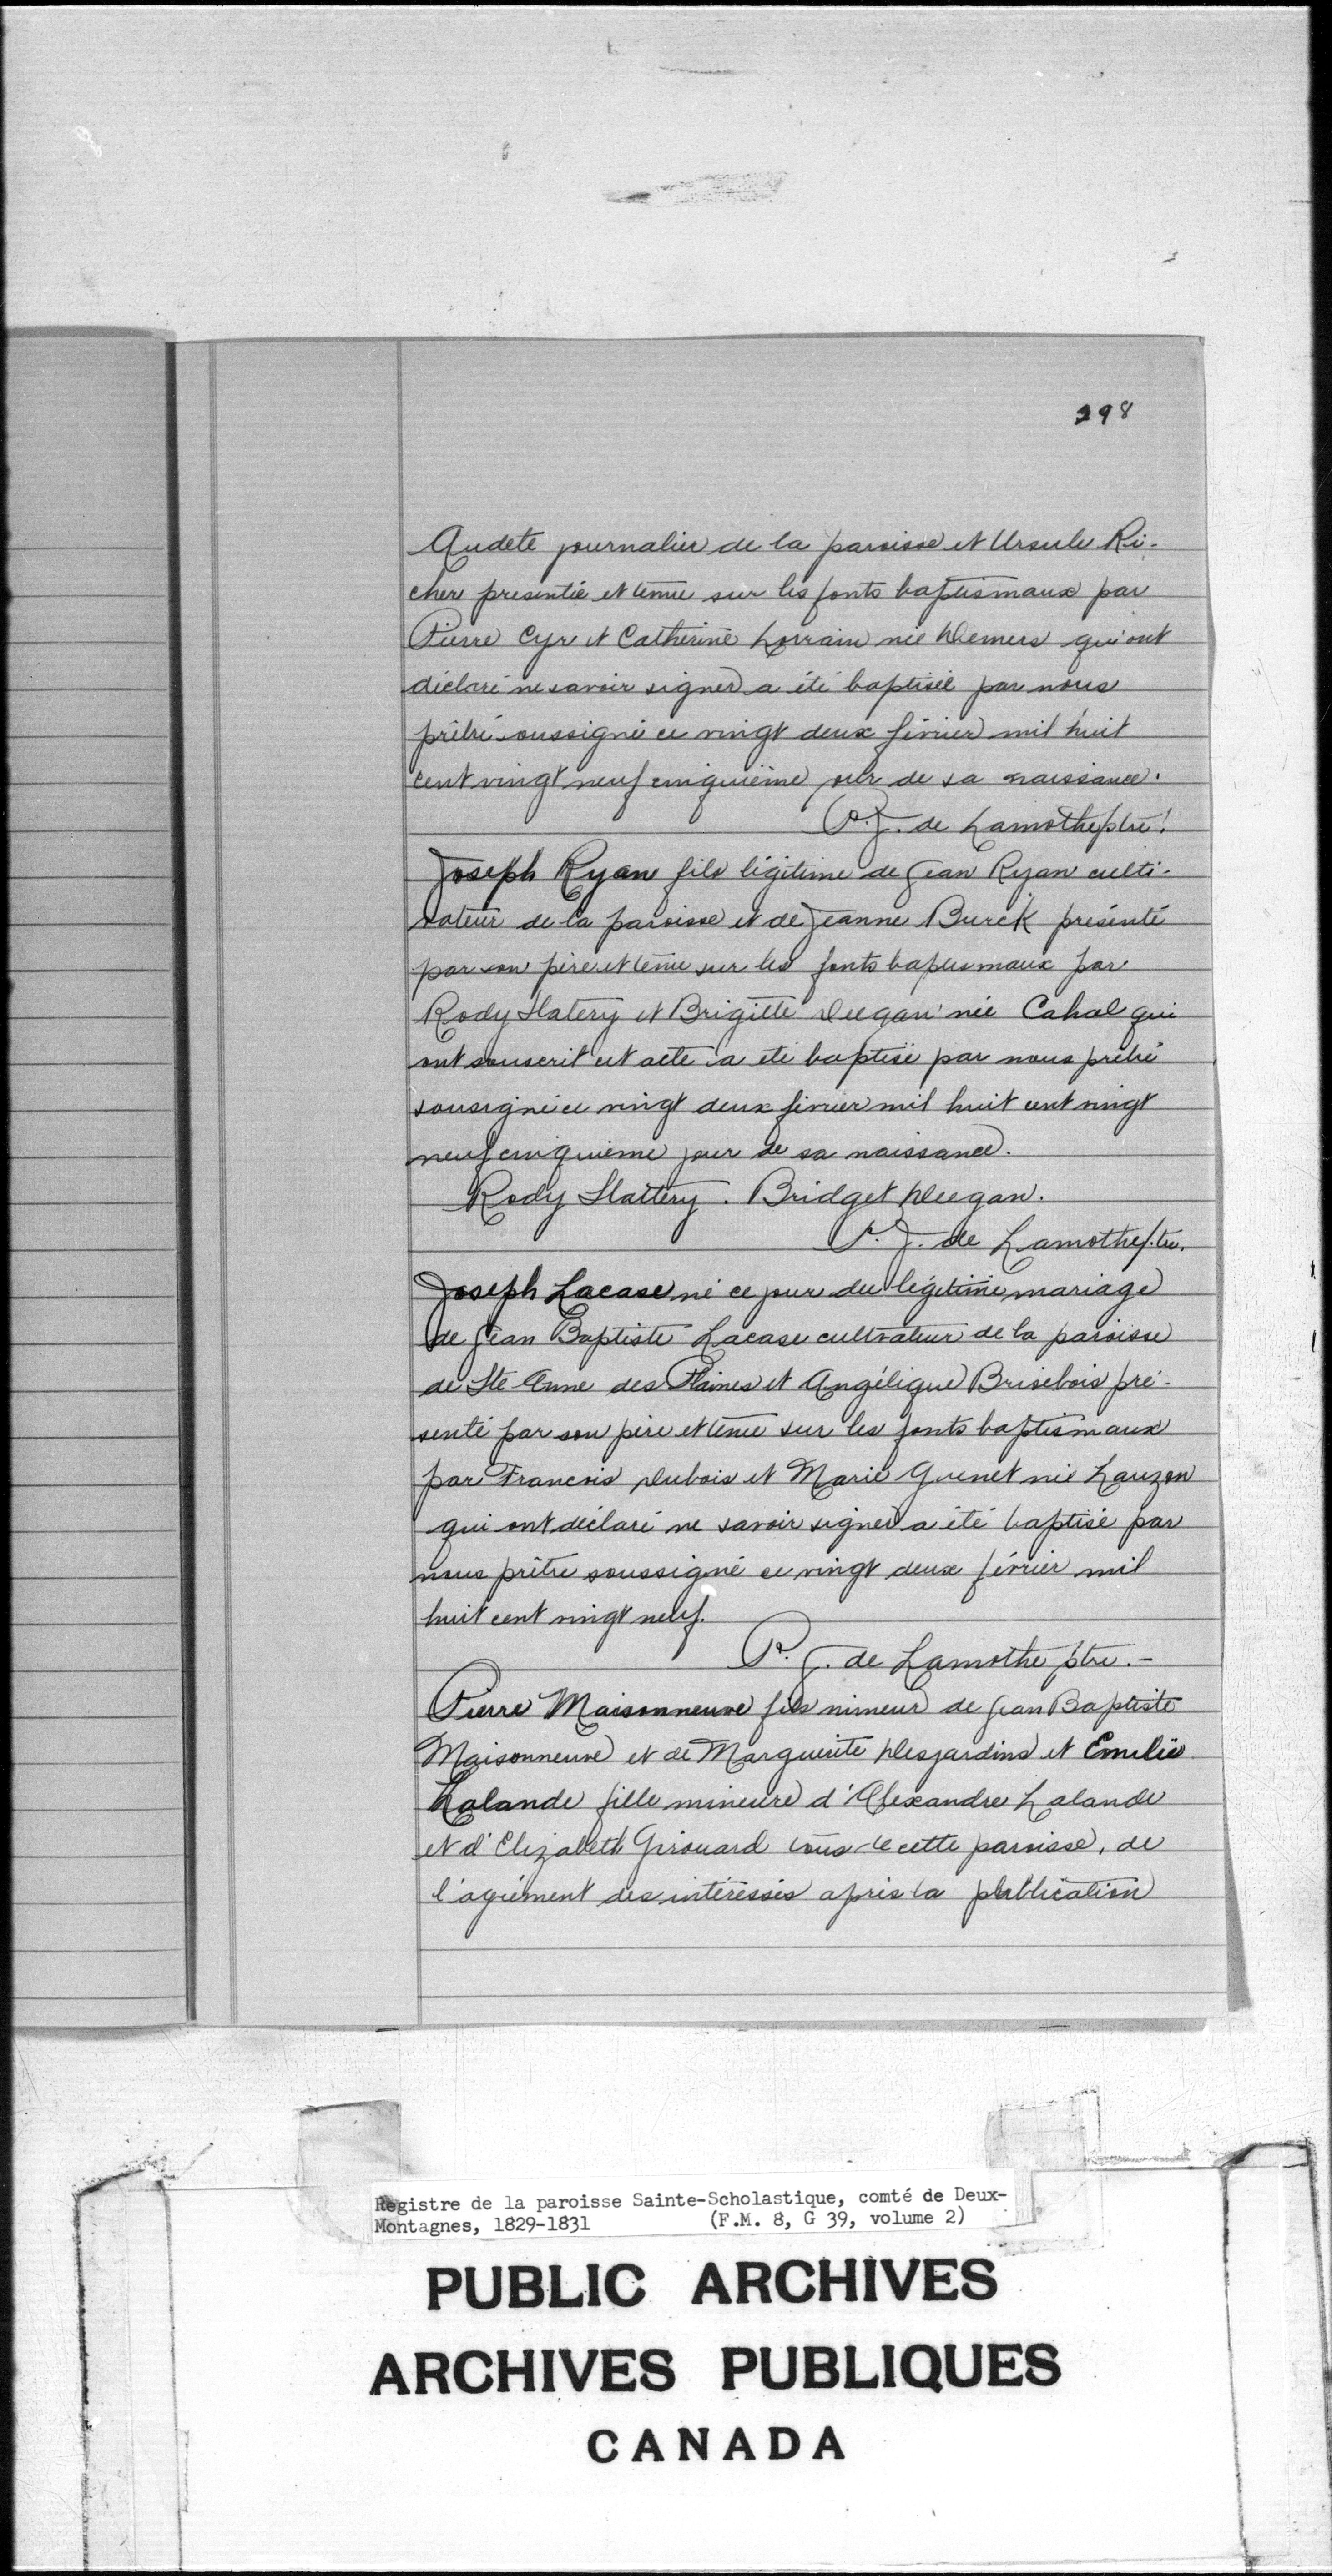 398
Audete journalier de la paroisse et Ursule Ri-
cher presentée et tenue sur les fonts baptismaux par
Pierre Cyr et Catherine Lorrain née Demers qui ont
déclaré ne savoir signer a été baptisée par nous
prêtre soussigné ce vingt deux février mil huit
cent vingt neuf cinquième jour de sa naissance.
P. J. de Lamothe ptre.
Joseph Ryan fils légitime de Jean Ryan culti-
vateur de la paroisse et de Jeanne Burck présenté
par son père et tenue sur les fonts baptismaux par
Rody Slatery et Brigitte Deegan née Cahal qui
ont souscrit cet acte a été baptisé par nous prêtre
sousigné ce vingt deux février mil huit cent vingt
neuf cinquième jour de sa naissance.
Rody Slattery. Bridget Deegan.
P. J. de Lamothe ptre.
Joseph Lacase né ce jour du légitime mariage
de Jean Baptiste Lacase cultvateur de la paroisse
de Ste Anne des Plaines et Angélique Brisebois pré-
senté par son père et tenue sur les fonts baptismaux
par Francois Dubois et Marie Guenet née Lauzon
qui ont déclaré ne savoir signer a été baptisé par
nous prêtre soussigné ce vingt deux février mil
huit cent vingt neuf.
P. J. de Lamothe ptre.-
Pierre Maisonneuve fils mineur de Jean Baptiste
Maisonneuve et de Marguerite Desjardins et Emélie
Lalande fille mineure d'Alexandre Lalande
et d'Elizabeth Girouard tous de cette paroisse, de
l'agrément des intéressés après la publication
Registre de la paroisse Sainte-Scholastique, comté de Deux-
Montagnes, 1829-1831 (F.M. 8, G 39, volume 2)
PUBLIC ARCHIVES
ARCHIVES PUBLIQUES
CANADA